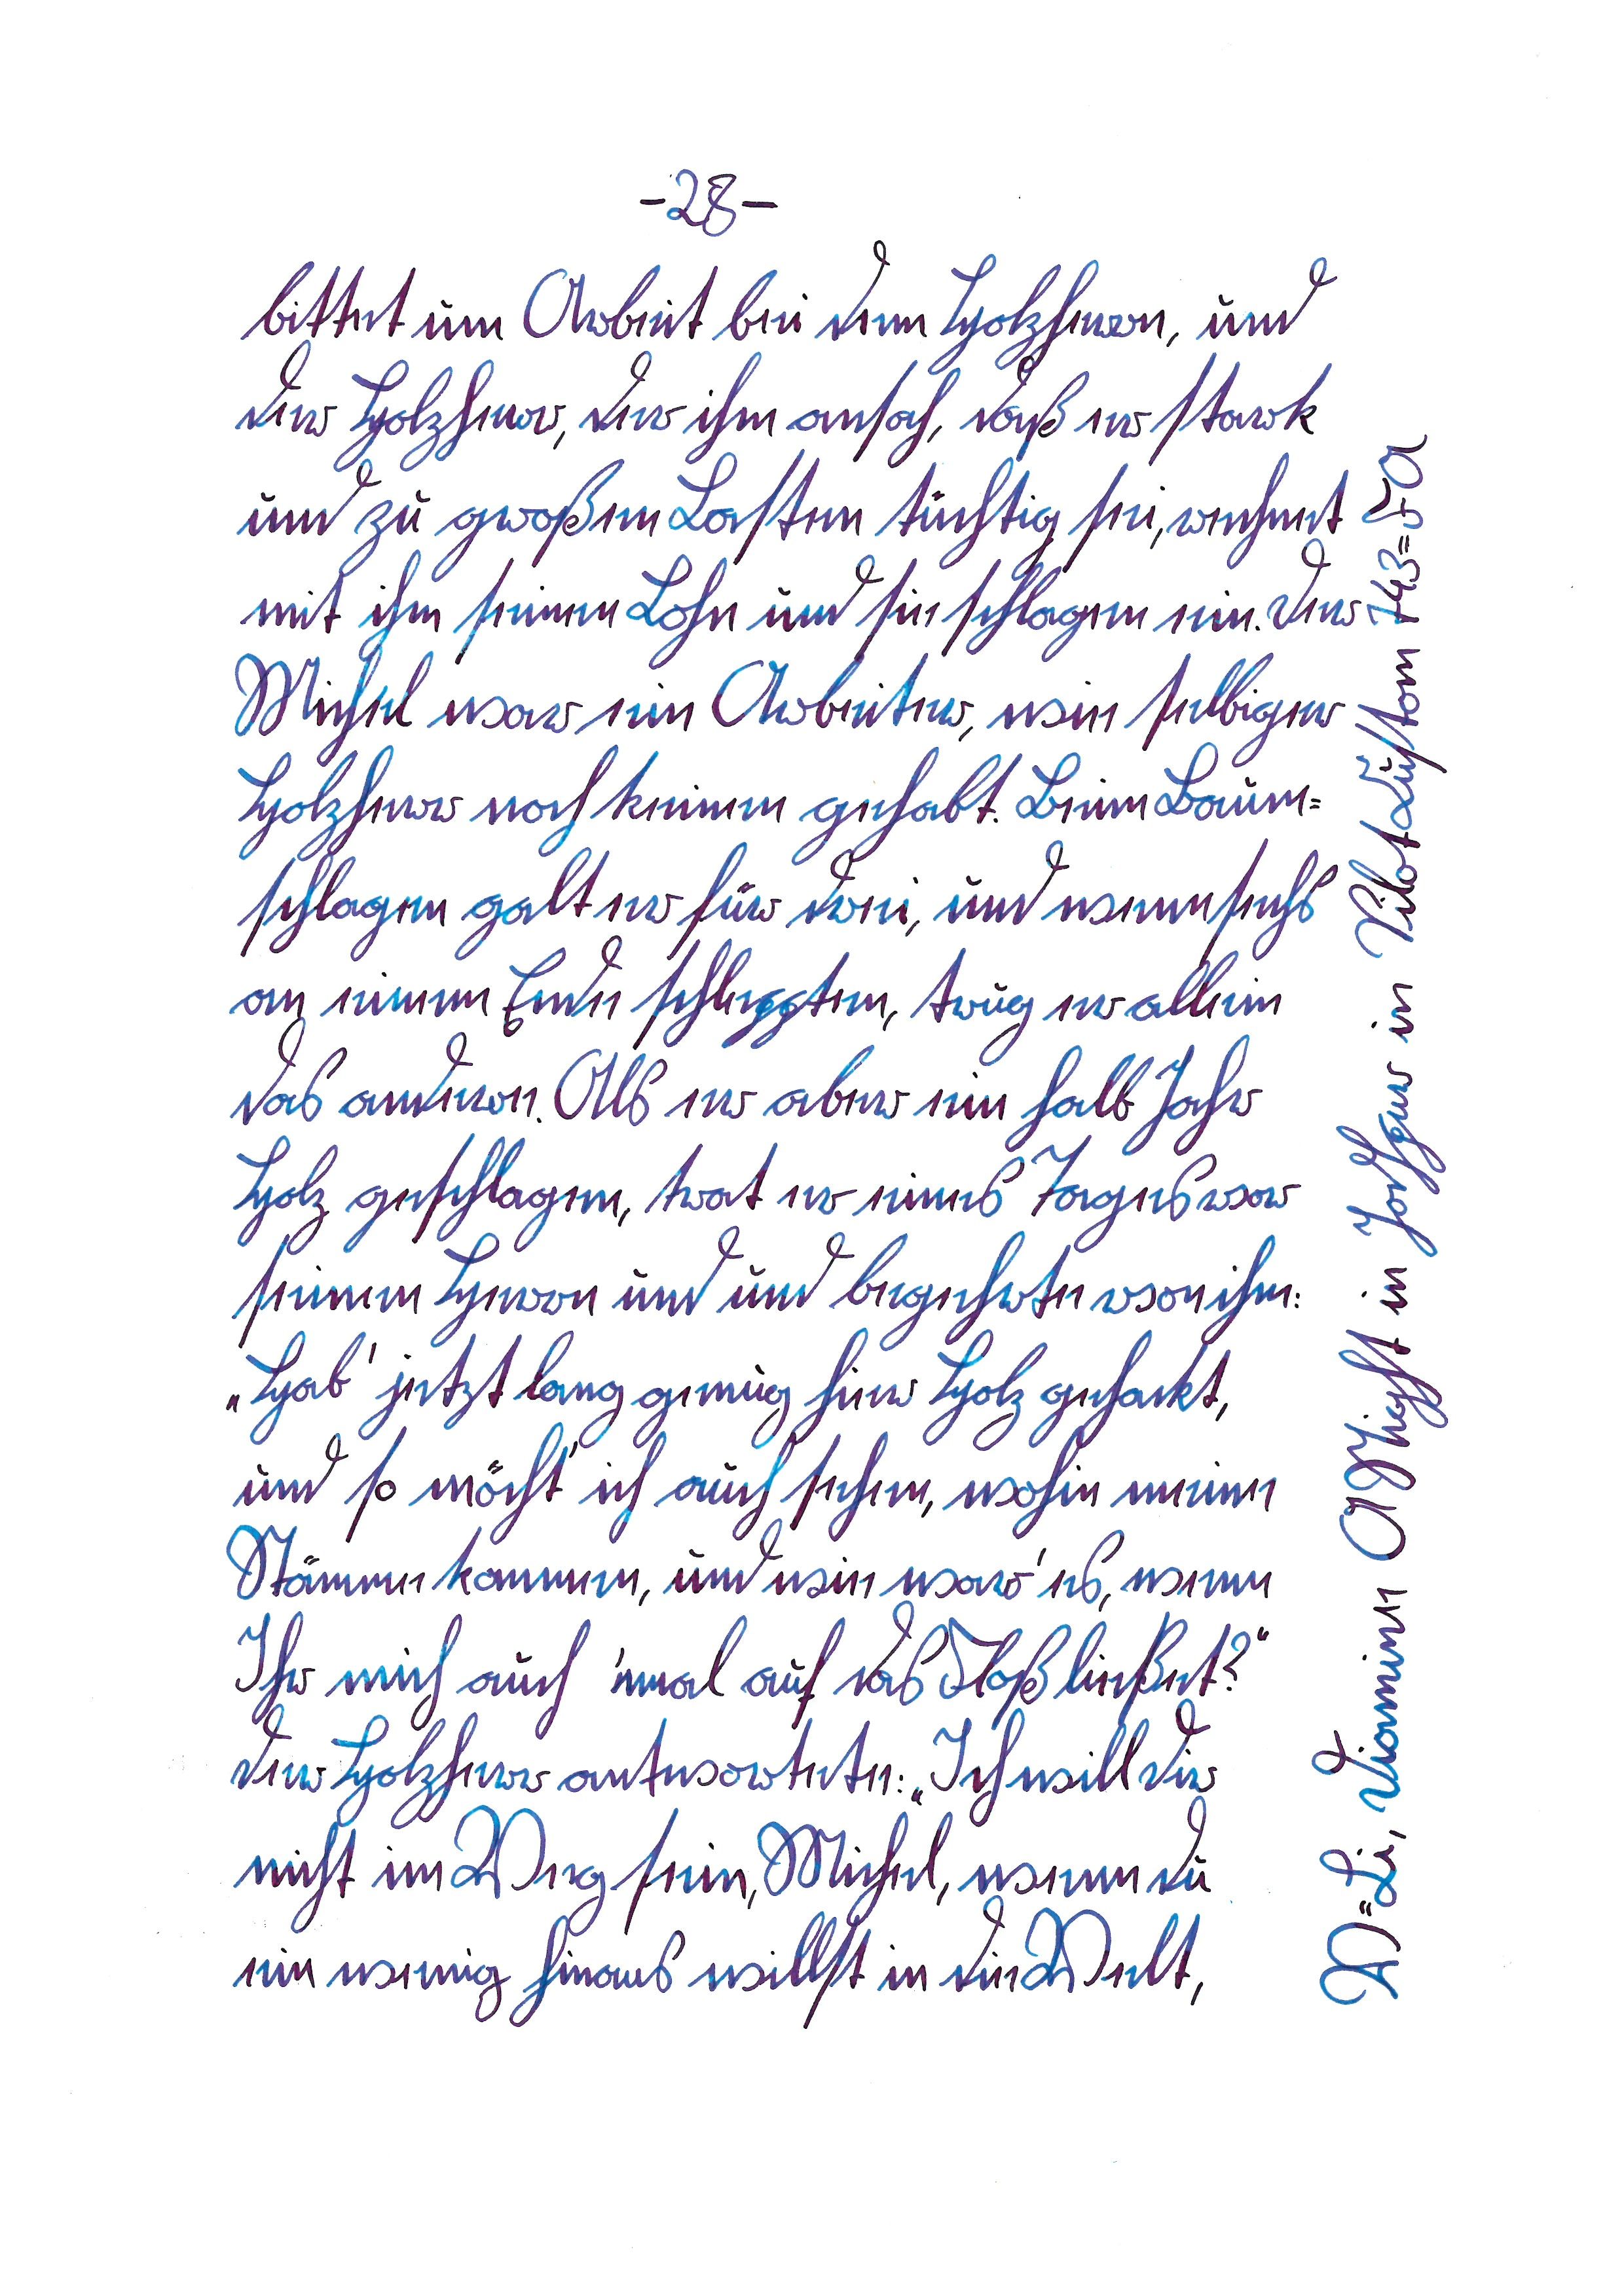 -28-
bittet um Arbeit bei dem Holzherren, und
der Holzherr, der ihm ansah, daß er stark
und zu großen Lasten tüchtig sei, rechnet
mit ihm seinen Lohn und sie schlagen ein. Der
Michel war ein Arbeiter, wie selbiger
Holzherr noch keinen gehabt. Beim Baum=
schlagen galt er für drei, und wenn sechs
an einem Ende schleppten, trug er allein
das andere. Als er aber ein halb Jahr
Holz geschlagen, trat er eines Tages vor
seinen Herren und und begehrte von ihm:
„Hab' jetzt lang genug hier Holz gehackt,
und so möcht' ich auch sehen, wohin meine
Stämme kommen, und wie wär' es, wenn
Ihr mich auch 'nmal auf das Floß ließet?“
Der Holzherr antwortete: „Ich will dir
nicht im Weg sein, Michel, wenn du
ein wenig hinaus willst in die Welt,
W=Li, Diamine in in Pilot Custom 743=FA